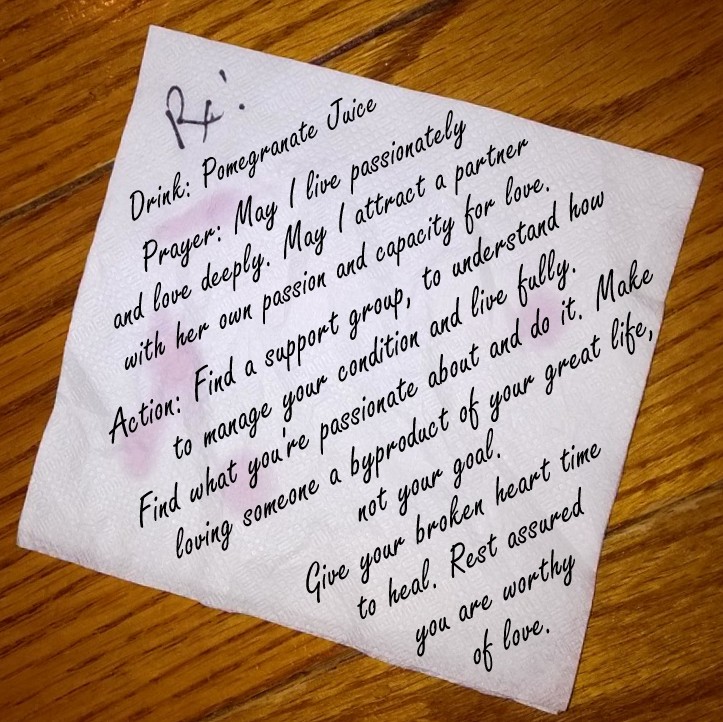 Rx:
Drink: Pomegranate Juice
Prayer: May I live passionately
and love deeply. May I attract a partner
with her own passion and capacity for love.
Action: Find a support group, to understand how
to manage your condition and live fully.
Find what you're passionate about and do it. Make
loving someone a byproduct of your great life,
not your goal.
Give your broken heart time
to heal. Rest assured
you are worthy
of love.